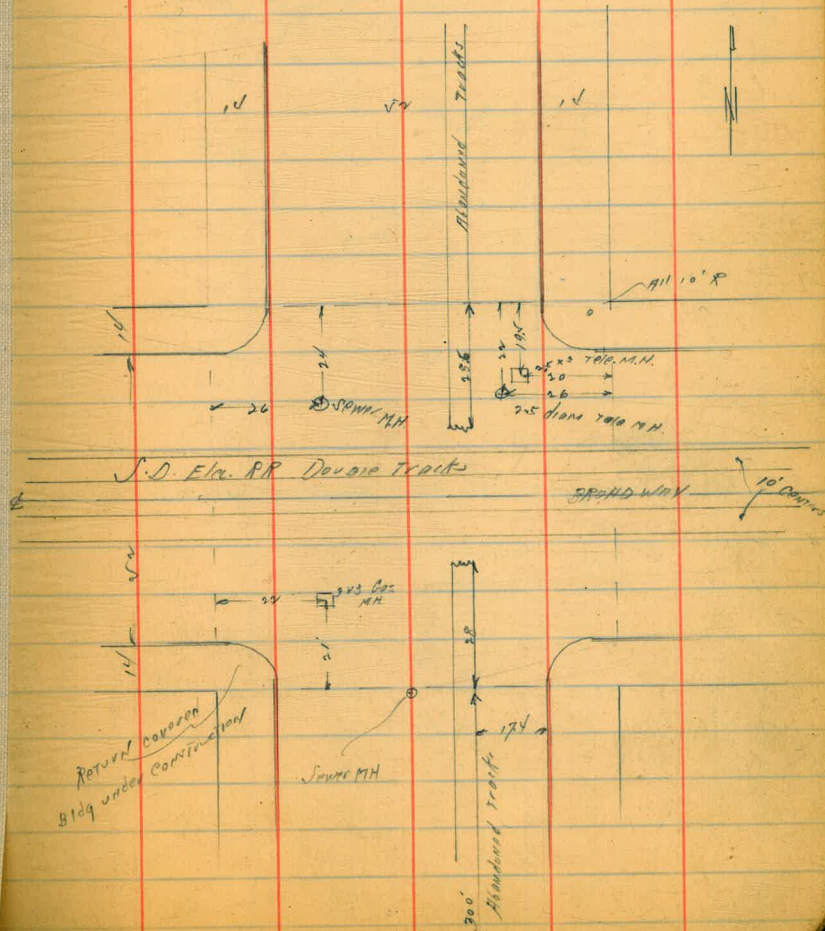 14
52
Abandoned Tracks
14
N
All 10' R
14
24
22
19.5
25.6
2.5 x 3 Tele. M.H.
20
26
26
Sewer
M.H.
2.5 diam Tele M.H.
S.D. Elec. RR Double Tracks
BROADWAY
10' Centers
℄
52
22
3x3 Gas
M.H.
21
28
14
17.4
Return covered
Bldg under Construction
Sewer MH
Abandoned Tracks
300'